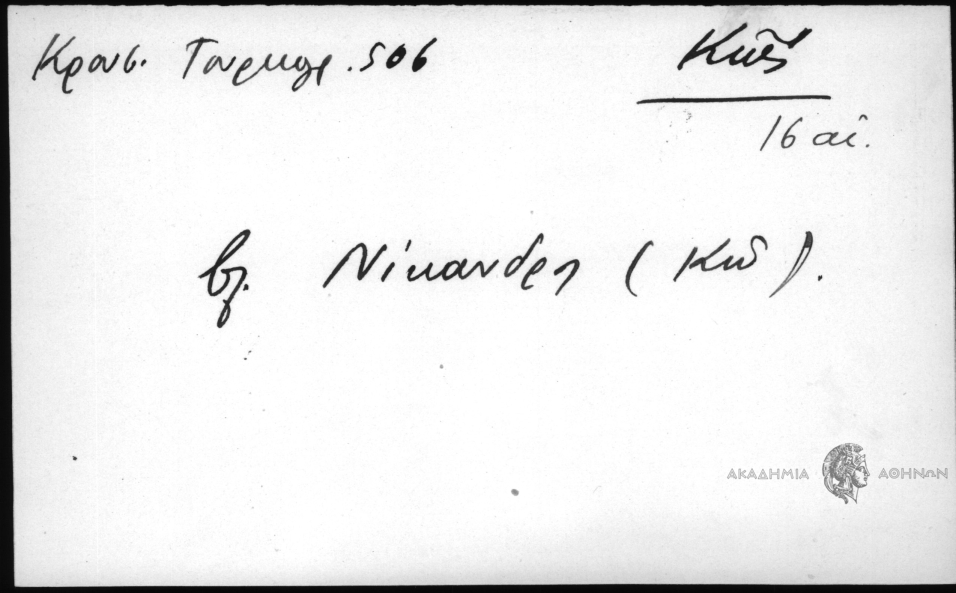 Κρουσ. Τουρκογρ. 506
Κῶς
16 αἰ.
βλ. Νίκανδρη (Κῶ).
ΑΚΑΔΗΜΙΑ ΑΘΗΝΩΝ